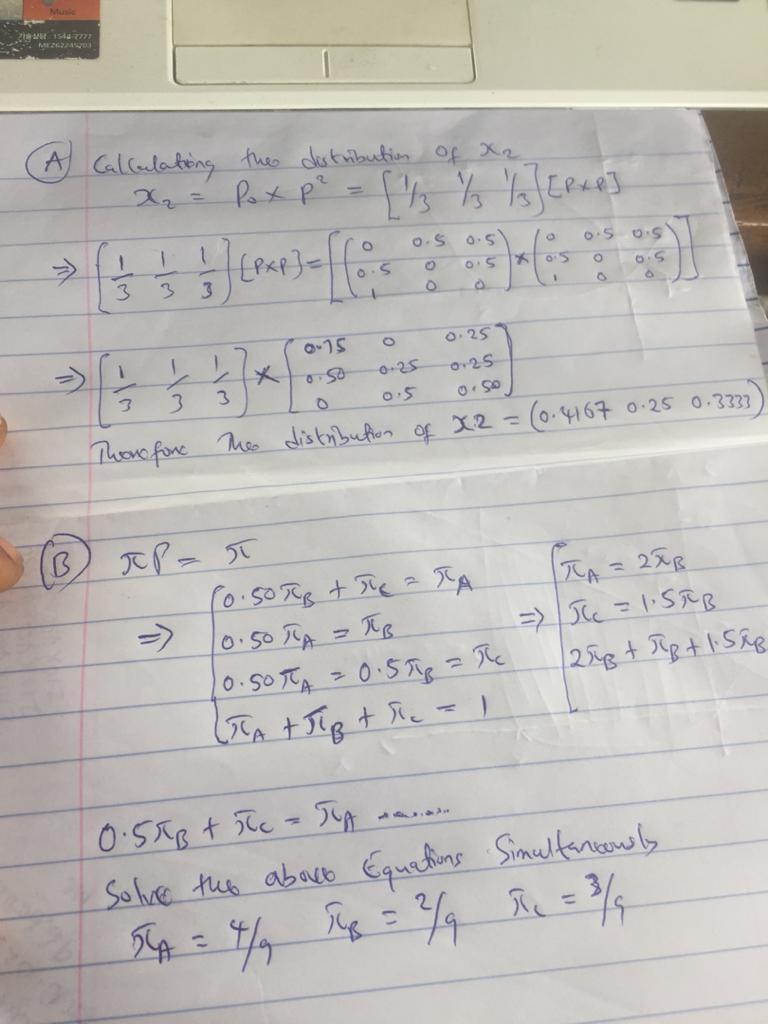 Music
1544-7777
ME262245203
A Calculating the distribution of x2
x2 = P0 × P² = [1/3 1/3 1/3] [P×P]
⇒ [1/3 1/3 1/3] [P×P] = [(0 0.5 0.5 * (0 0.5 0.5
0.5 0 0.5 0.5 0 0.5
1 0 0) 1 0 0)]
⇒ [1/3 1/3 1/3] * [0.75 0 0.25
0.50 0.25 0.25
0 0.5 0.50]
Therefore The distribution of x2 = (0.4167 0.25 0.3333)
B πP = π
⇒ 0.50πB + πC = πA
0.50πA = πB
0.50πA = 0.5πB = πC
πA + πB + πC = 1
⇒ πA = 2πB
πC = 1.5πB
2πB + πB + 1.5πB
0.5πB + πC = πA ........
Solve the above Equations Simultaneously
πA = 4/9 πB = 2/9 πC = 3/9